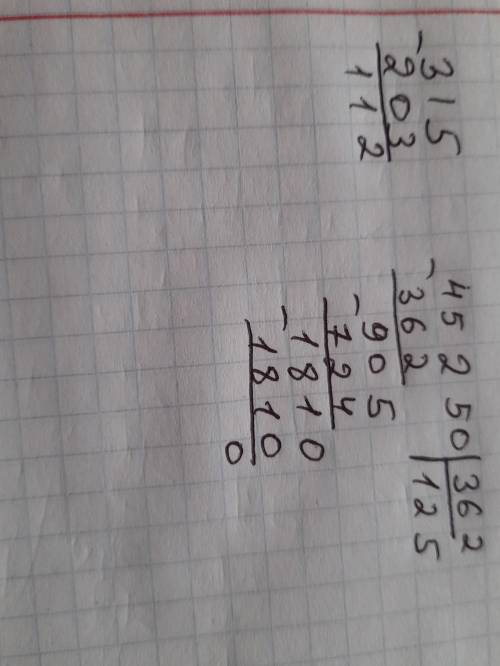 -315
203
112
-45250|362
362|125
-905
724
-1810
1810
0